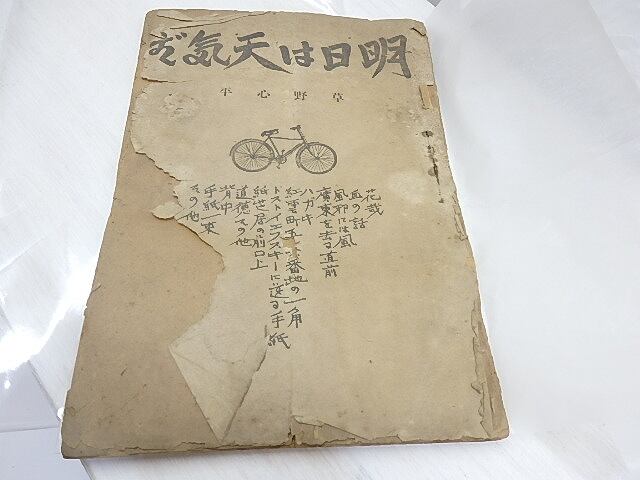 明日は天気だ
草野心平
花哉
血の話
風邪には風
廣東を去る直前
ハガキ
紅雪町五ノ六番地の一角
ドストイエフスキーに送る手紙
紙芝居の前口上
道徳その他
背中
手紙一束
その他